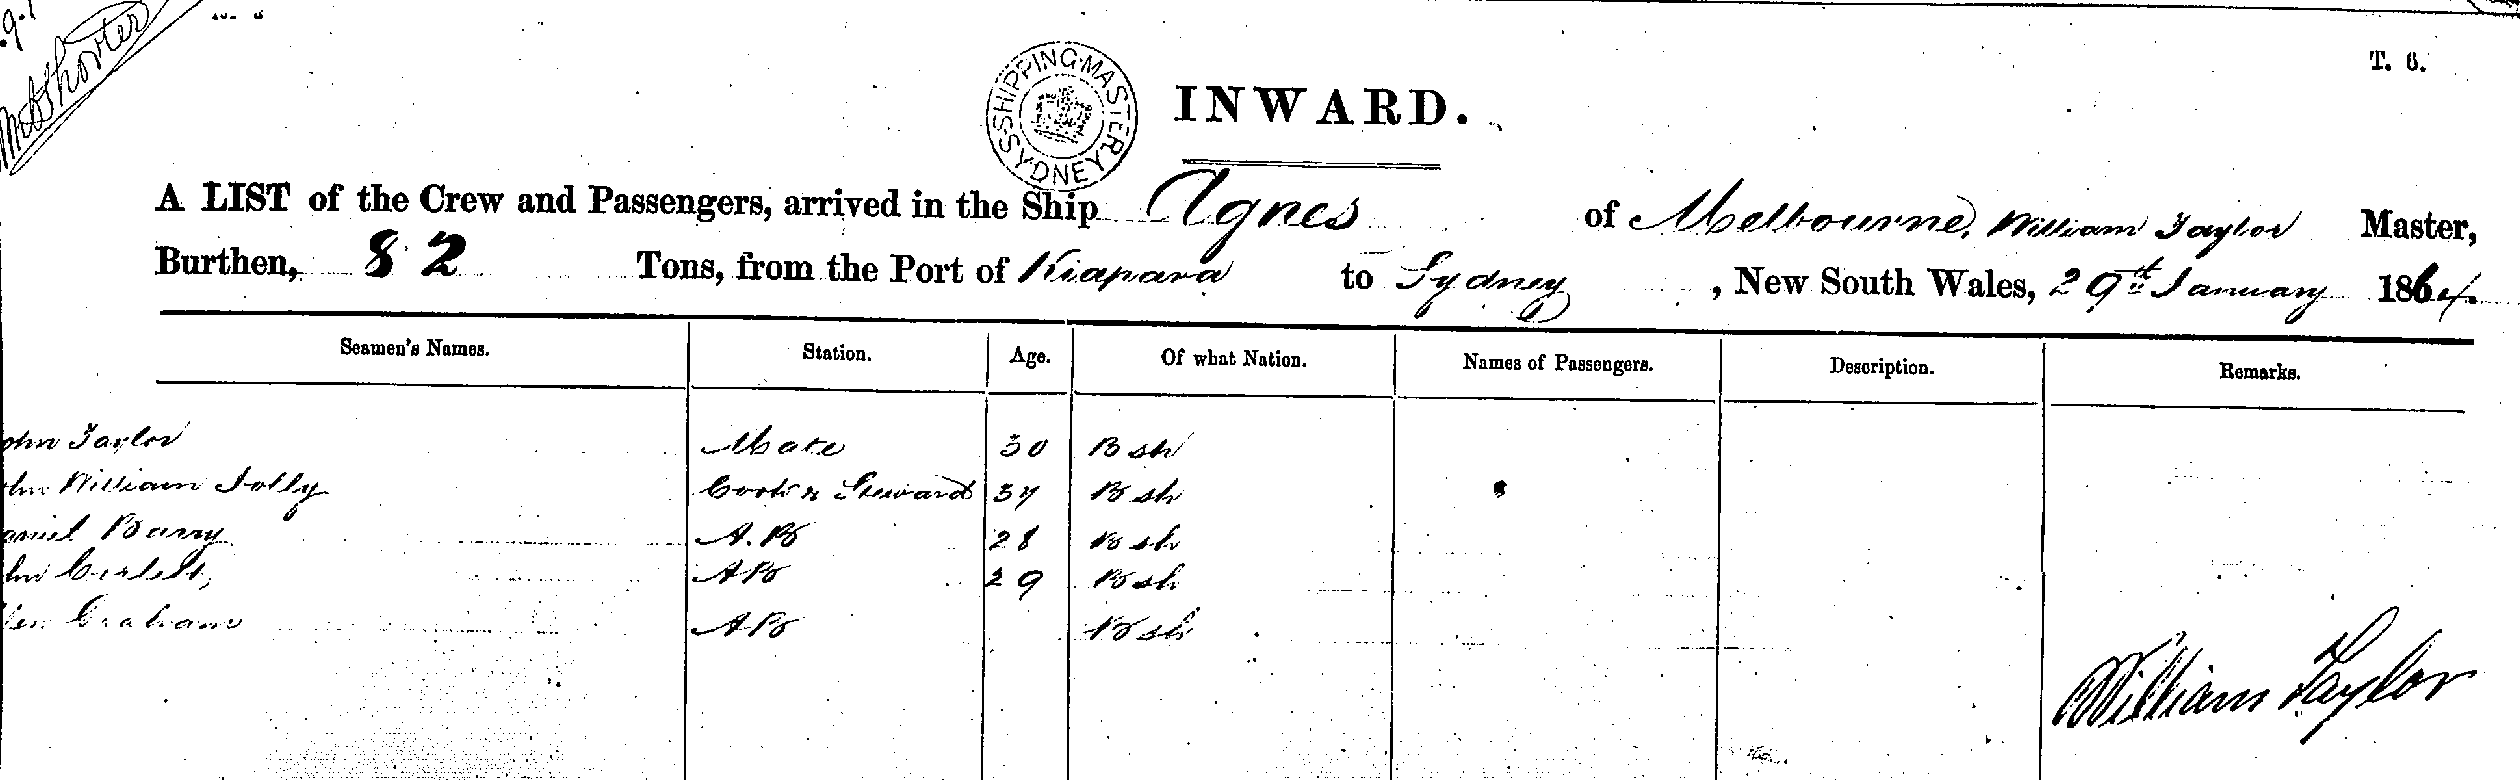 T. 6.
SHIPPING MASTER SYDNEY
INWARD.
A LIST of the Crew and Passengers, arrived in the Ship Agnes of Melbourne, William Taylor Master,
Burthen, 82 Tons, from the Port of Kiapara to Sydney, New South Wales, 29th January 1864
Seamen's Names. Station. Age. Of what Nation. Names of Passengers. Description. Remarks.
ohn Taylor Mate 30 Bsh
ohn William Jolly Cook & Steward 37 Bsh
aniel Barry A.B 28 Bsh
hn AB 29 Bsh
Graham AB Bsh
William Taylor